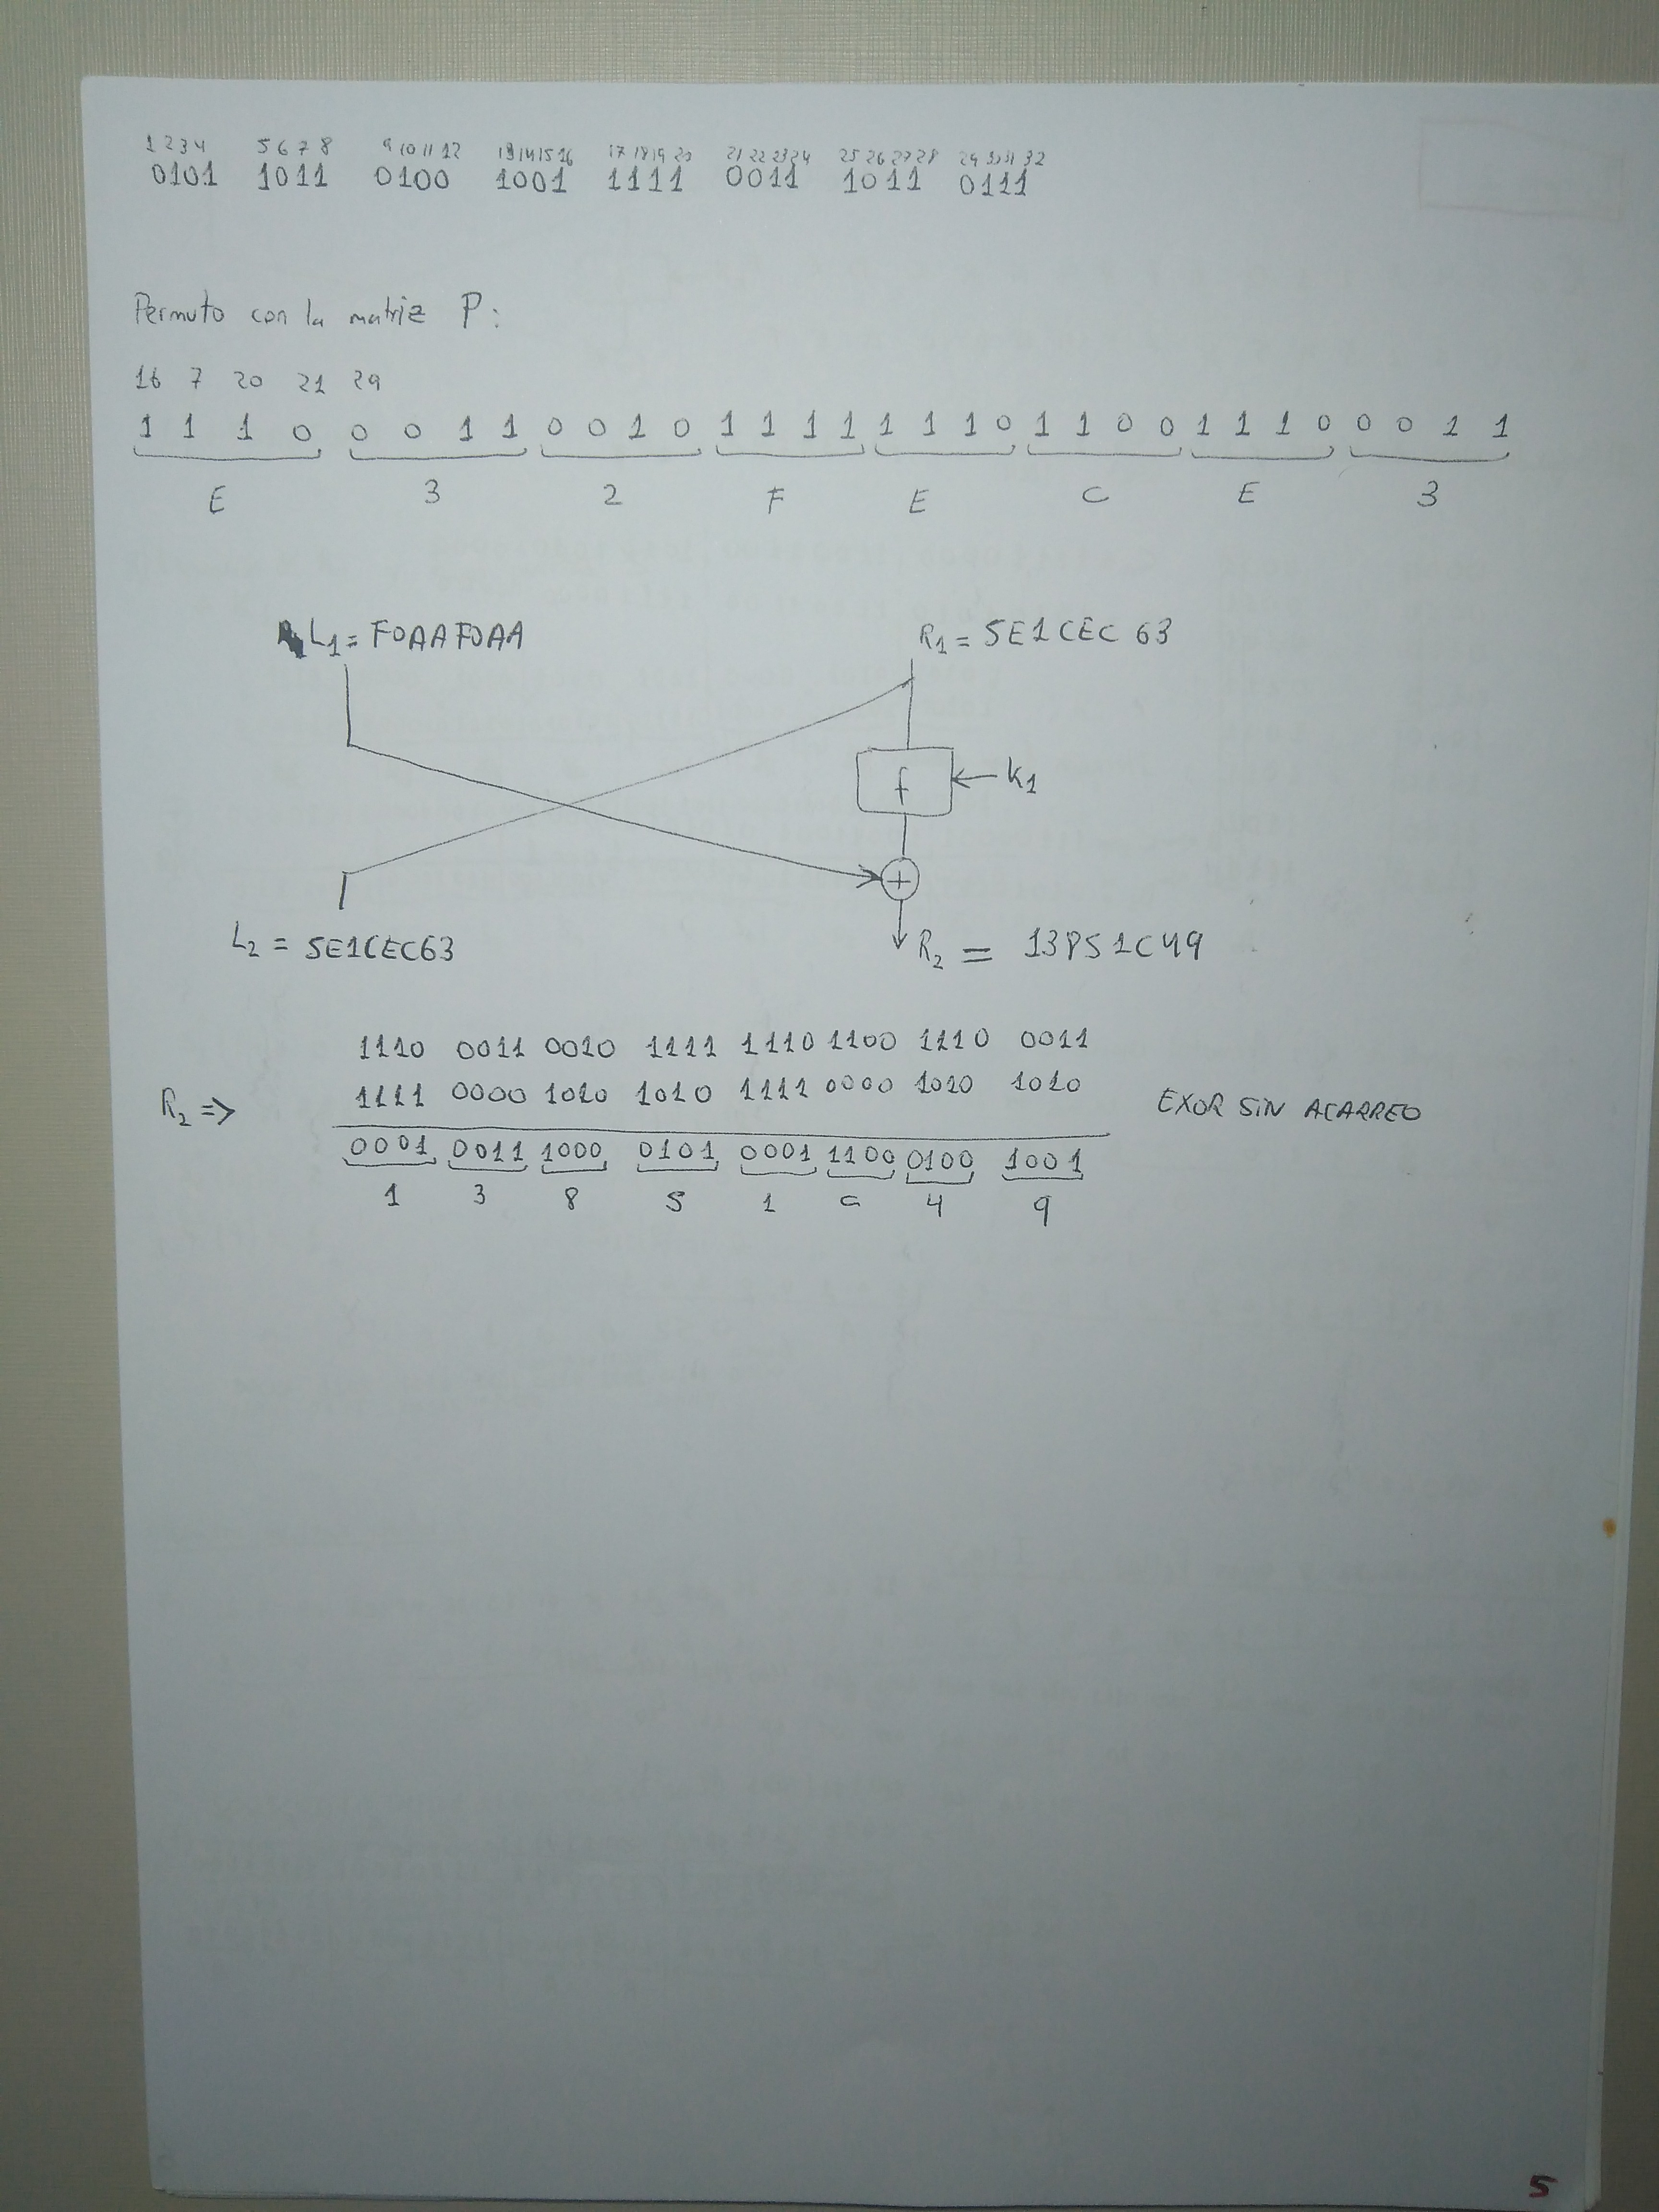 1 2 3 4 5 6 7 8 9 10 11 12 13 14 15 16 17 18 19 20 21 22 23 24 25 26 27 28 29 30 31 32
0101 1011 0100 1001 1111 0011 1011 0111
Permuto con la matriz P:
16 7 20 21 29
1 1 1 0 0 0 1 1 0 0 1 0 1 1 1 1 1 1 1 0 1 1 0 0 1 1 1 0 0 0 1 1
E 3 2 F E C E 3
L1 = F0AAF0AA R1 = 5E1CEC63
f ← K1
+
L2 = 5E1CEC63 R2 = 13851C49
1110 0011 0010 1111 1110 1100 1110 0011
R2 => 1111 0000 1010 1010 1111 0000 1010 1010 EXOR SIN ACARREO
0001 0011 1000 0101 0001 1100 0100 1001
1 3 8 5 1 C 4 9
5